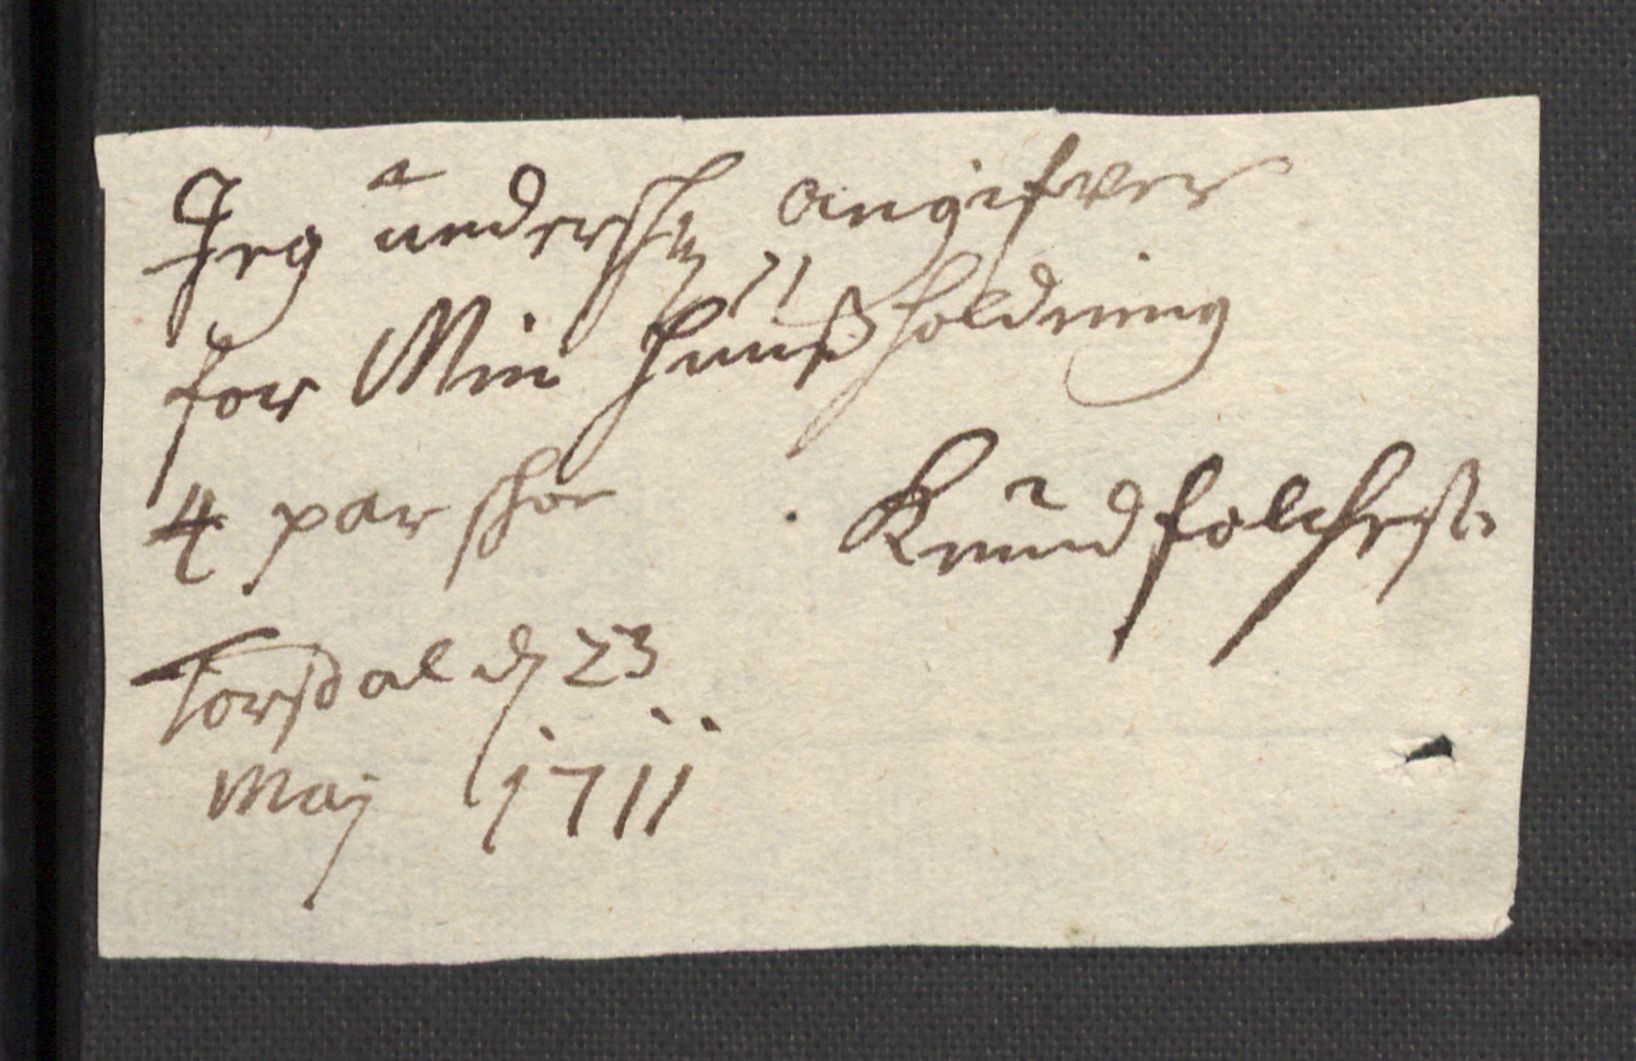 Jeg underskr angifver
for Min huusholdning
4 par schoe
Knud folchest
Torsdal d 23
Maij 1711